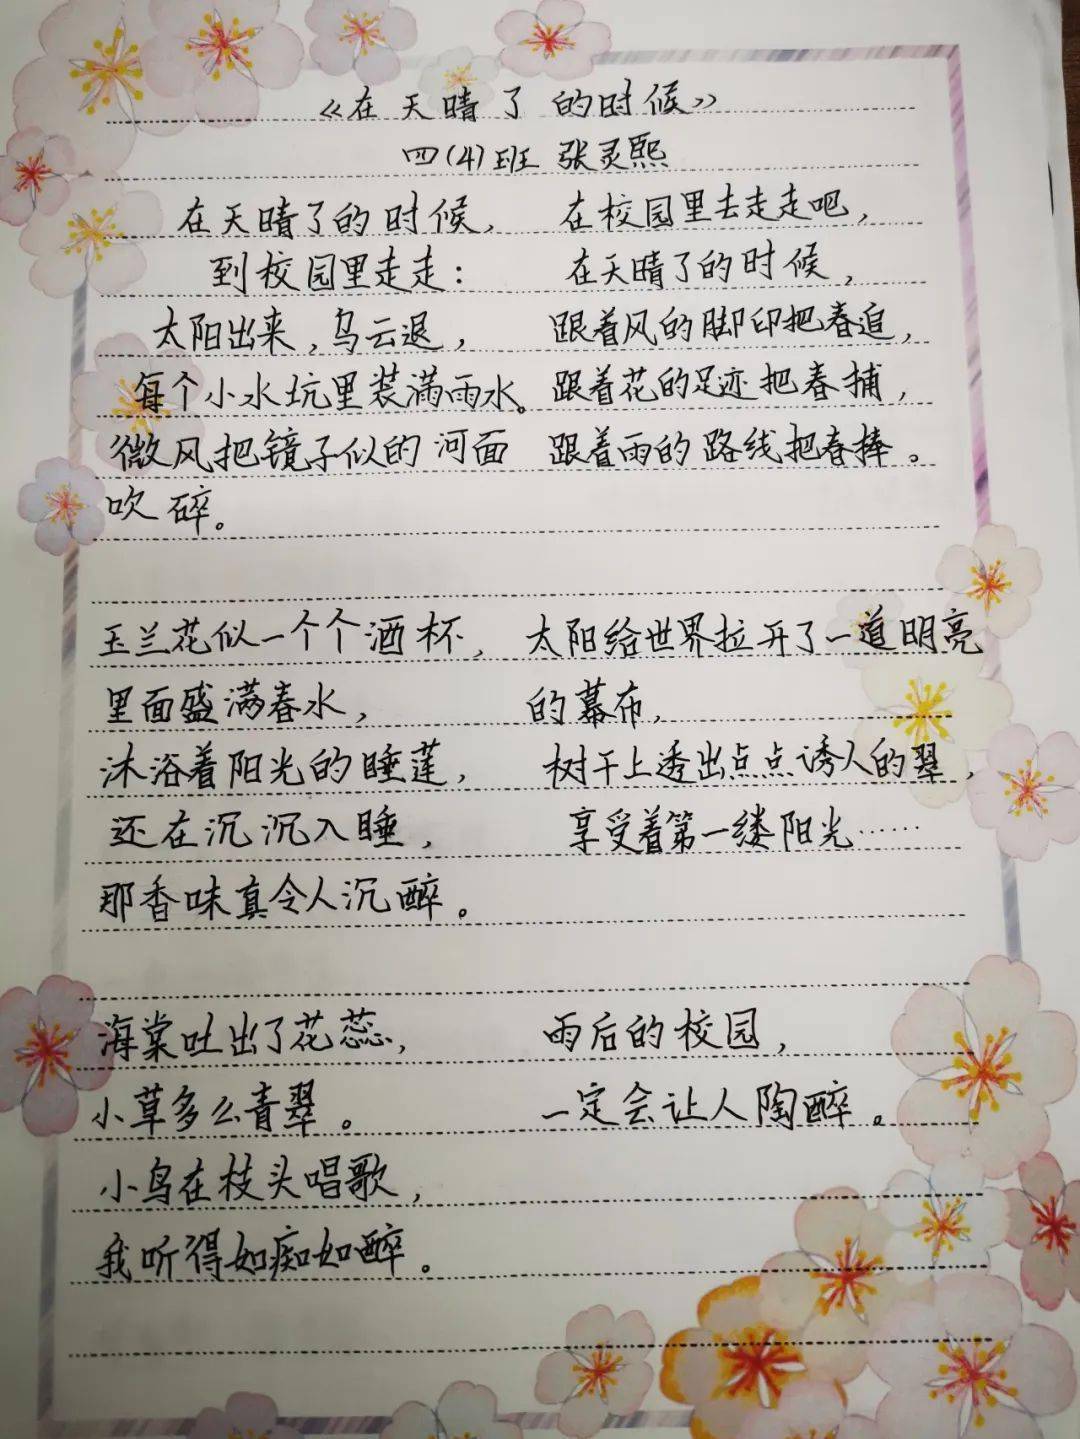 《在天晴了的时候》
四(4)班 张灵熙
在天晴了的时候，
到校园里走走：
太阳出来，乌云退，
每个小水坑里装满雨水。
微风把镜子似的河面
吹碎。
玉兰花似一个个酒杯，
里面盛满春水，
沐浴着阳光的睡莲，
还在沉沉入睡，
那香味真令人沉醉。
海棠吐出了花蕊，
小草多么青翠。
小鸟在枝头唱歌，
我听得如痴如醉。
在校园里去走走吧，
在天晴了的时候，
跟着风的脚印把春追，
跟着花的足迹把春捕，
跟着雨的路线把春捧。
太阳给世界拉开了一道明亮
的幕布，
树干上透出点点诱人的翠，
享受着第一缕阳光……
雨后的校园，
一定会让人陶醉。